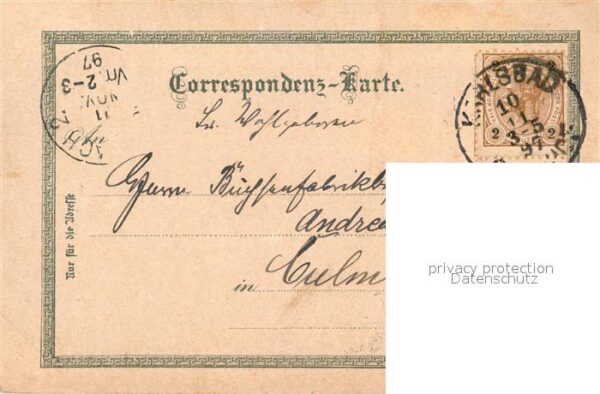 Correspondenz-Karte.
Sr. Wohlgeboren
Herrn Büchsenfabrikb
Andrea
in Culm
Nur für die Adresse
KARLSBAD
10
5
97
2 2
11
NOV.
Vm. 2-3
97
privacy protection
Datenschutz